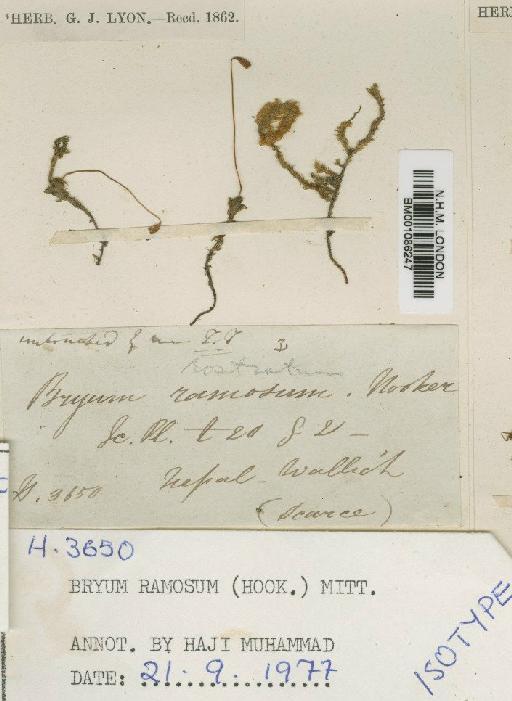 HERB. G. J. LYON.—Recd. 1862.
HERB
N.H.M. LONDON
BM001086247
Bryum ramosum. Hooker
Nepal Wallich
H. 3650
(Scarce)
H. 3650
BRYUM RAMOSUM (HOOK.) MITT.
ANNOT. BY HAJI MUHAMMAD
DATE: 21.9.1977
ISOTYPE